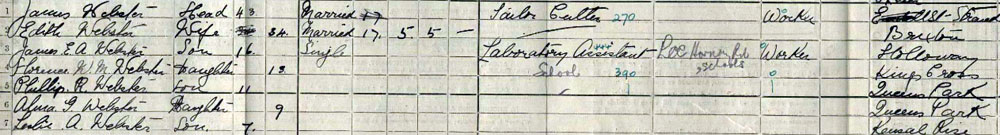 1 James Webster Head 43 Married 17 Tailor Cutter 270 Worker Strand
2 Edith Webster Wife 34. Married 17. 5 5 — Brixton
3 James E. A. Webster Son 16. Single Laboratory Assistant Worker Holloway
4 Florence W. M. Webster Daughter 13. School 390 0 Kings Cross
5 Phillip R. Webster Son 11 Queens Park
6 Alma G. Webster Daughter 9 Queens Park
7 Leslie A. Webster Son. 7. Kensal Rise